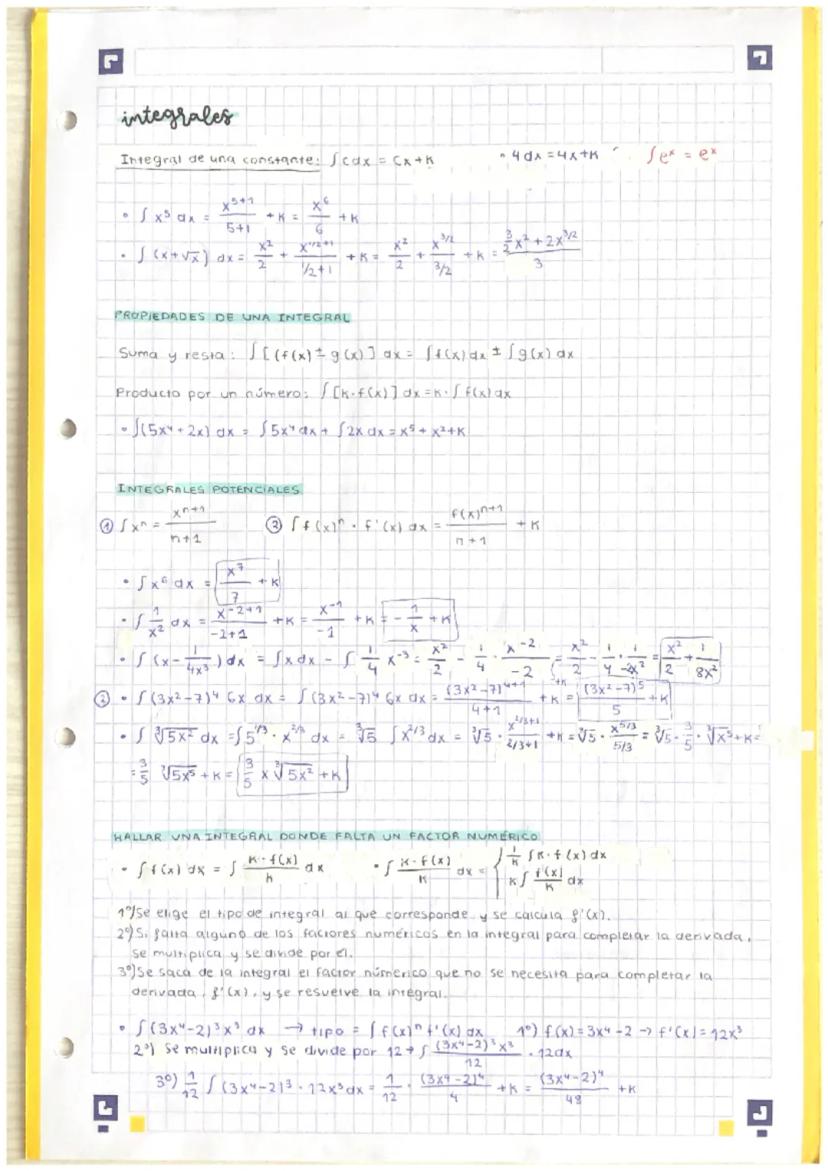 integrales
Integral de una constante: ∫cdx = Cx+K • 4dx = 4x+K ∫eˣ = eˣ
• ∫ x⁵ dx = x⁵⁺¹/5+1 + K = x⁶/6 + K
• ∫ (x+√x) dx = x²/2 + x^(1/2+1)/(1/2+1) + K = x²/2 + x^(3/2)/(3/2) + K = (3/2 x² + 2x^(3/2))/3
PROPIEDADES DE UNA INTEGRAL
Suma y resta: ∫[(f(x) ± g(x)] dx = ∫f(x) dx ± ∫g(x) dx
Producto por un número: ∫[k·f(x)] dx = k·∫f(x) dx
• ∫(5x⁴ + 2x) dx = ∫5x⁴ dx + ∫2x dx = x⁵ + x² + K
INTEGRALES POTENCIALES
① ∫xⁿ = xⁿ⁺¹/n+1 ② ∫f(x)ⁿ · f'(x) dx = f(x)ⁿ⁺¹/n+1 + K
• ∫x⁶ dx = x⁷/7 + K
• ∫ 1/x² dx = x⁻²⁺¹/-2+1 + K = x⁻¹/-1 + K = - 1/x + K
• ∫ (x - 1/4x³) dx = ∫x dx - ∫ 1/4 x⁻³ = x²/2 - 1/4 · x⁻²/-2 + K = x²/2 - 1/4 · 1/-2x² = x²/2 + 1/8x²
② • ∫(3x²-7)⁴ 6x dx = ∫(3x²-7)⁴ 6x dx = (3x²-7)⁴⁺¹/4+1 + K = (3x²-7)⁵/5 + K
• ∫ ∛5x² dx = ∫5^(1/3) · x^(2/3) dx = ∛5 ∫x^(2/3) dx = ∛5 · x^(2/3+1)/(2/3+1) + K = ∛5 · x^(5/3)/(5/3) = ∛5 · 3/5 · ∛x⁵ + K =
= 3/5 ∛5x⁵ + K = 3/5 x ∛5x² + K
HALLAR UNA INTEGRAL DONDE FALTA UN FACTOR NUMÉRICO
• ∫f(x) dx = ∫ K·f(x)/K dx • ∫ K·f(x)/K dx = { 1/K ∫K·f(x) dx
K∫ f(x)/K dx
1º) Se elige el tipo de integral al que corresponde y se calcula f'(x).
2º) Si falta alguno de los factores numéricos en la integral para completar la derivada,
se multiplica y se divide por él.
3º) Se saca de la integral el factor númerico que no se necesita para completar la
derivada, f'(x), y se resuelve la integral.
• ∫(3x⁴-2)³x³ dx → tipo = ∫f(x)ⁿ f'(x) dx 1º) f(x) = 3x⁴-2 → f'(x) = 12x³
2º) Se multiplica y se divide por 12 → ∫ (3x⁴-2)³x³/12 · 12dx
3º) 1/12 ∫(3x⁴-2)³ · 12x³dx = 1/12 · (3x⁴-2)⁴/4 + K = (3x⁴-2)⁴/48 + K